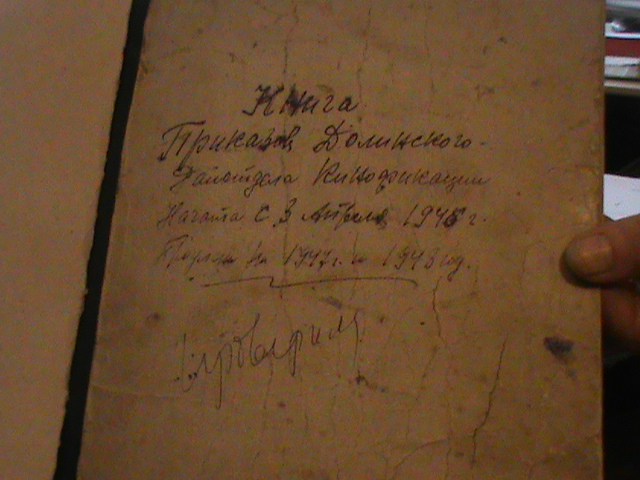 Книга
Приказов Долинского
Райотдела Кинофикации
Начата с 3 Апреля 1946 г.
на 1947 г. и 1948 год.